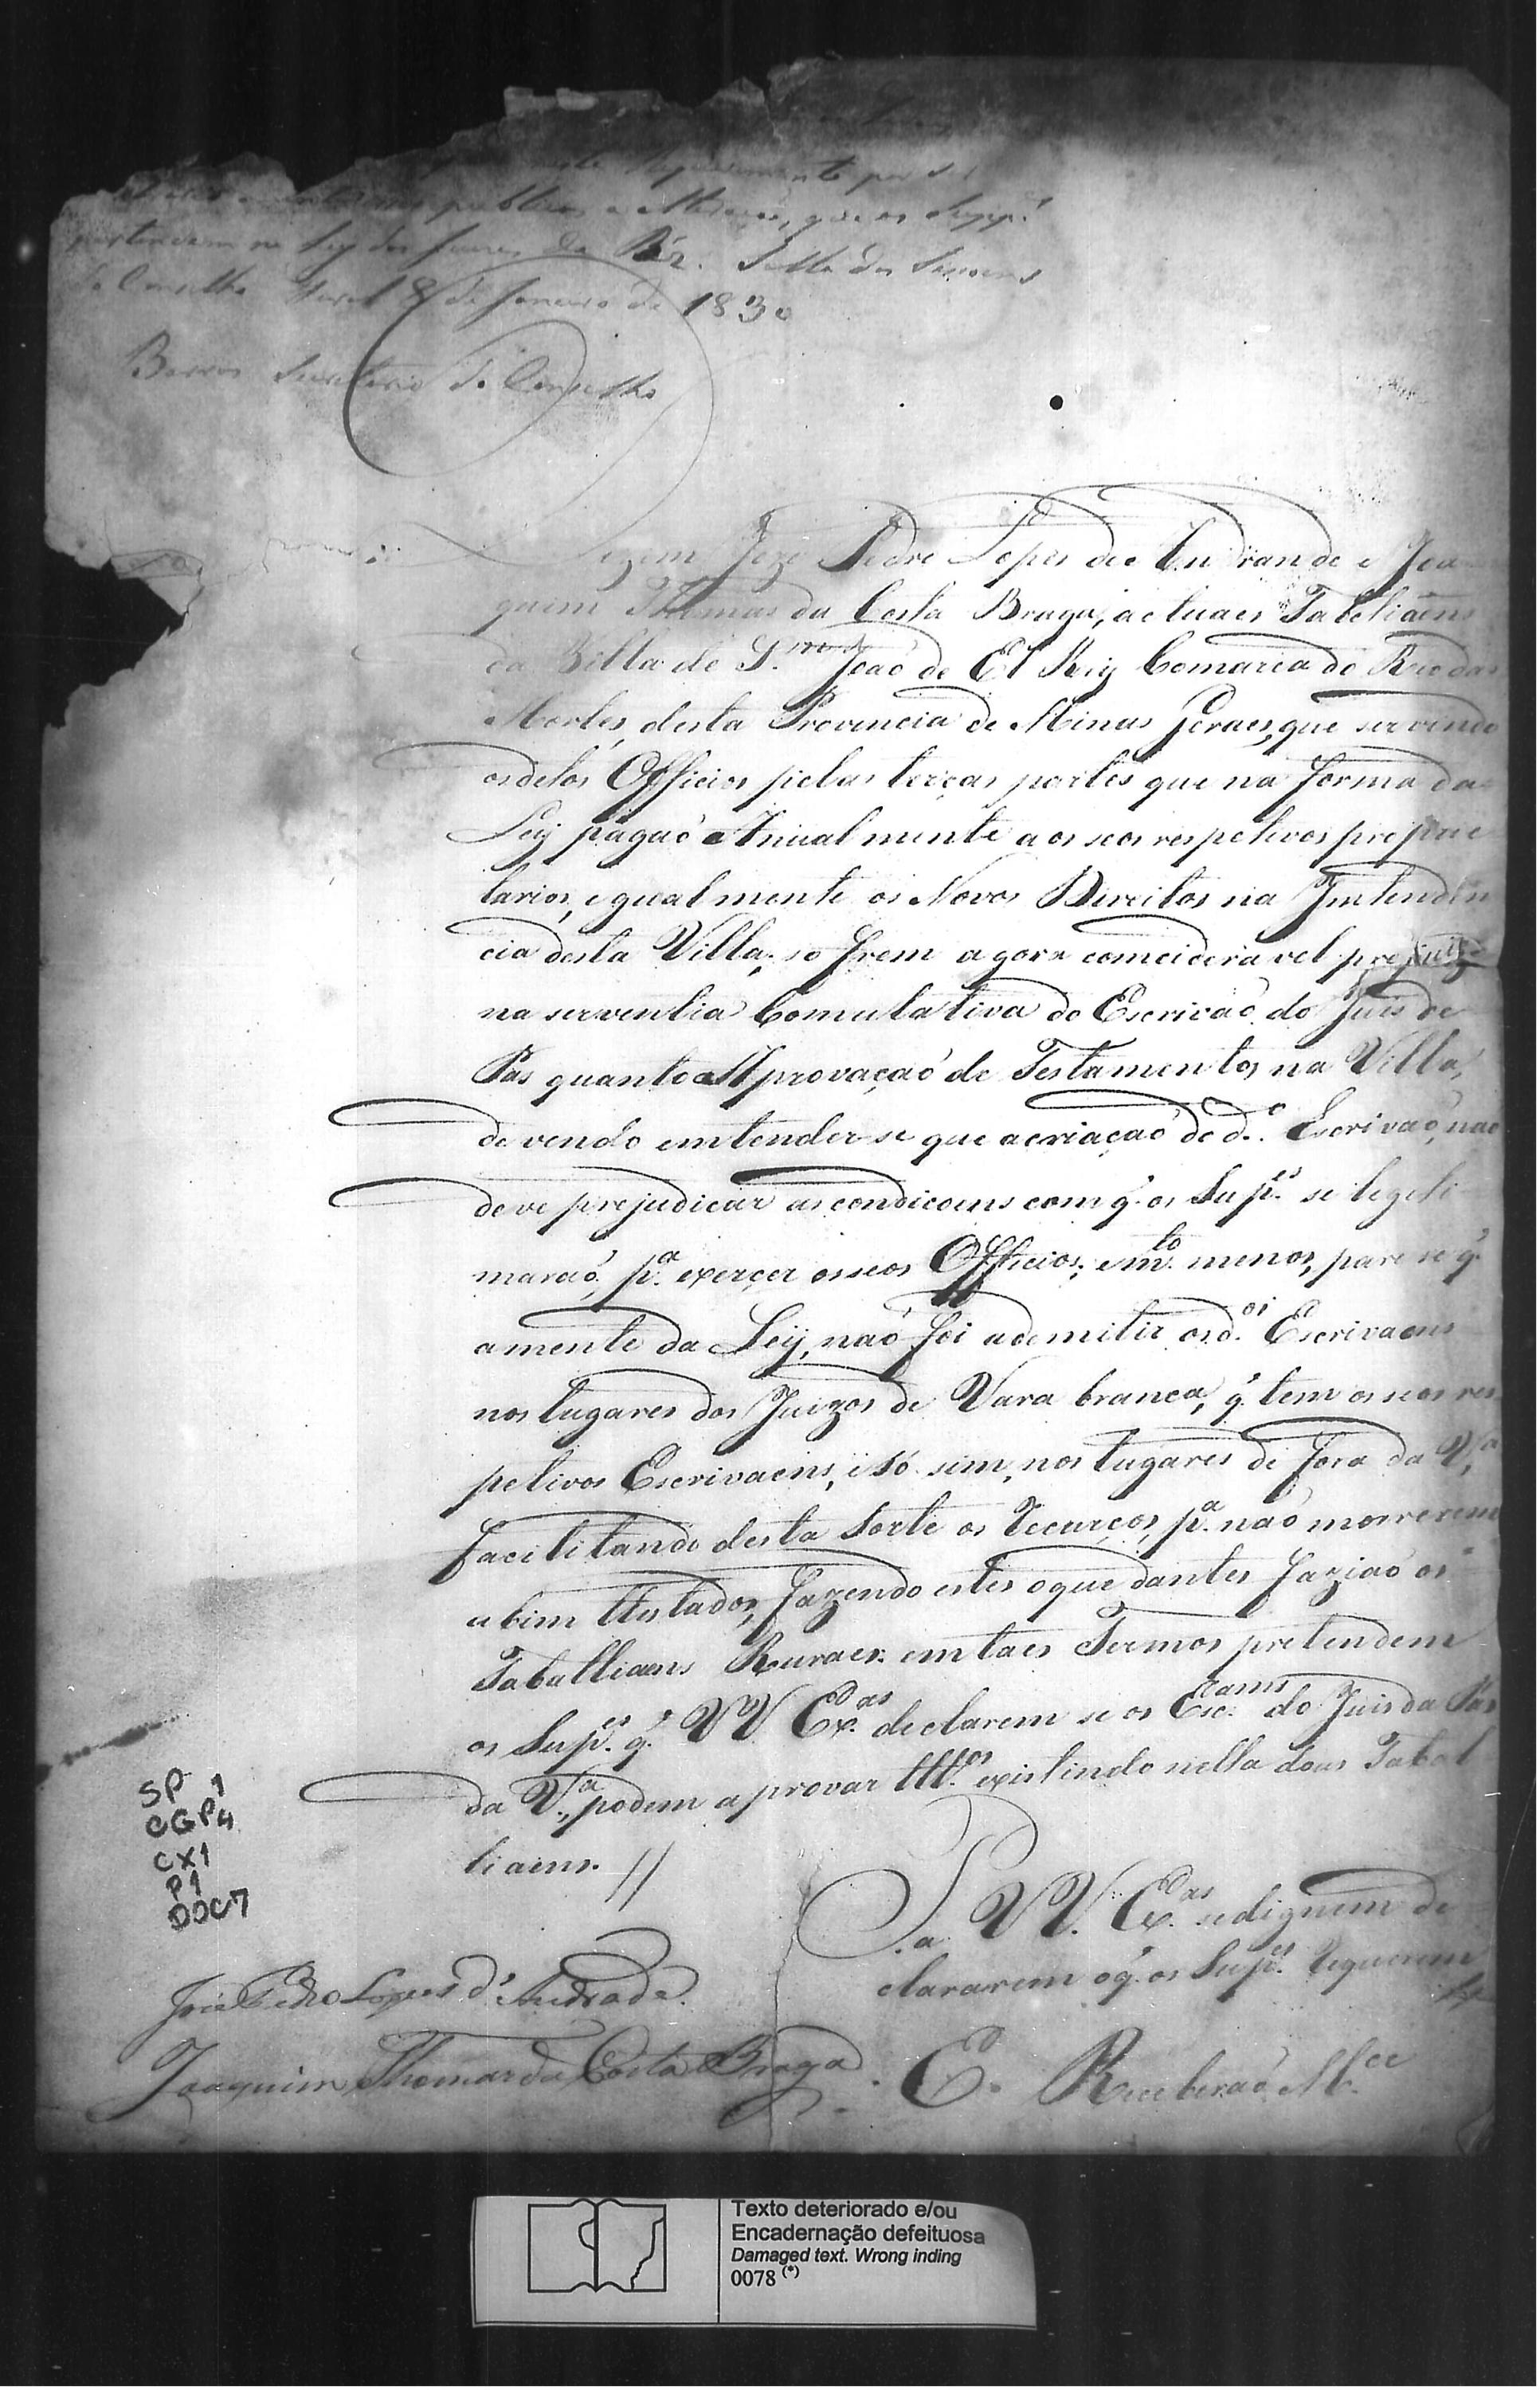 Requerimento por se
publicos a
pertencem na Ley dos Juizes de Páz. Salla das Sessoens
do Conselho Geral 8 de Janeiro de 1830
Barros Secretario do Conselho
Dizem Joze Pedro Lopes de Andrande e Joa
quim Thomas da Costa Braga, actuaes Tabeliaens
da Villa de S. João de El Rey Comarca do Rio das
Mortes, desta Provincia de Minas Geraes, que servindo
os detos Officios pelas terças partes que na forma da
Ley págaõ Anualmente aos seos respetivos proprie
tarios, egualmente os Novos Direitos na Intenden
cia desta Villa; sofrem agora comcideravel prejuizo
na serventia Comulativa do Escrivaõ do Juis de
Pas quanto a Aprovaçaõ de Testamentos na Villa,
devendo emtender-se que acriaçaõ de d.º Escrivaõ, naõ
deve prejudicar as condicoens com q.' os Sup.es se legeti
maraõ, p.a exerçer os seos Officios; e m.to menos, parese q.'
amente da Ley, naõ foi ademitir os d.os Escrivaens
nos lugares dos Juizos de Vara branca, q.' tem os seos res
petivos Escrivaens, e só sim, nos lugares de fora da V.a,
facilitando desta sorte os recurços, p.a naõ morrerem
abim tustados, fazendo estes oque dantes faziaõ os
Taballiaens Ruraes: em taes Termos pretendem
os Sup.es q.' VV Ex.as declarem se os Esc.raens do Juis da Pas
da V.a, podem aprovar ttt.os existindo nella dous Tabal
liaens. //
P. a VV. Ex.as se dignem de
clararem o q.' os Sup.es requerem
E. Receberaõ M.ce
José Pedro Lopes d'Andrade.
Joaquim Thomas da Costa Braga
SP 1
CGP4
CX1
P1
DOC7
Texto deteriorado e/ou
Encadernação defeituosa
Damaged text. Wrong inding
0078 (*)